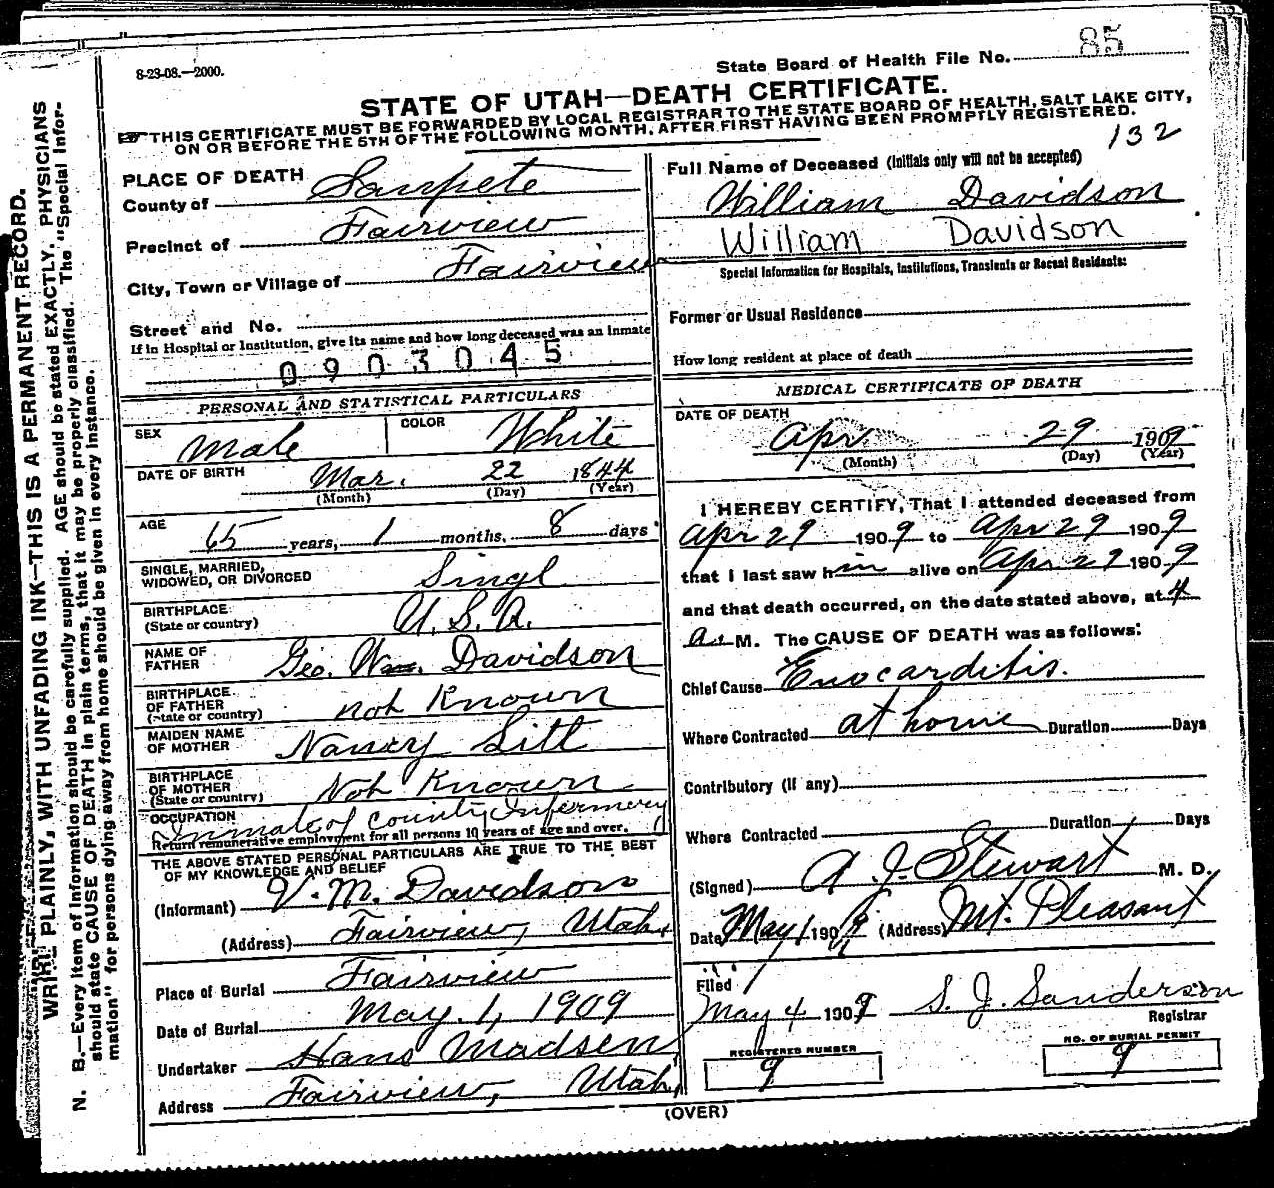 8-23-08.—2000.
State Board of Health File No. 85
STATE OF UTAH—DEATH CERTIFICATE.
THIS CERTIFICATE MUST BE FORWARDED BY LOCAL REGISTRAR TO THE STATE BOARD OF HEALTH, SALT LAKE CITY,
ON OR BEFORE THE 5TH OF THE FOLLOWING MONTH, AFTER FIRST HAVING BEEN PROMPTLY REGISTERED.
132
WRITE PLAINLY, WITH UNFADING INK—THIS IS A PERMANENT RECORD.
N. B.—Every item of information should be carefully supplied. AGE should be stated EXACTLY. PHYSICIANS
should state CAUSE OF DEATH in plain terms, that it may be properly classified. The "Special Infor-
mation" for persons dying away from home should be given in every instance.
PLACE OF DEATH
County of Sanpete
Precinct of Fairview
City, Town or Village of Fairview
Street and No.
If in Hospital or Institution, give its name and how long deceased was an inmate
0903045
PERSONAL AND STATISTICAL PARTICULARS
SEX Male
COLOR White
DATE OF BIRTH Mar. 22 1844
(Month) (Day) (Year)
AGE 65 years, 1 months, 8 days
SINGLE, MARRIED,
WIDOWED, OR DIVORCED Singl
BIRTHPLACE
(State or country) U.S.A.
NAME OF
FATHER Geo. Wm. Davidson
BIRTHPLACE
OF FATHER
(State or country) not Known
MAIDEN NAME
OF MOTHER Nancy Litt
BIRTHPLACE
OF MOTHER
(State or country) Not Known
OCCUPATION
Inmate of County Infermery
Return remunerative employment for all persons 10 years of age and over.
THE ABOVE STATED PERSONAL PARTICULARS ARE TRUE TO THE BEST
OF MY KNOWLEDGE AND BELIEF
(Informant) V. M. Davidson
(Address) Fairview, Utah,
Place of Burial Fairview
Date of Burial May. 1, 1909
Undertaker Hans Madsen,
Address Fairview, Utah,
Full Name of Deceased (Initials only will not be accepted)
William Davidson
William Davidson
Special Information for Hospitals, Institutions, Transients or Recent Residents:
Former or Usual Residence
How long resident at place of death
MEDICAL CERTIFICATE OF DEATH
DATE OF DEATH
Apr 29 1909
(Month) (Day) (Year)
I HEREBY CERTIFY, That I attended deceased from
Apr 29 1909 to Apr 29 1909
that I last saw him alive on Apr 29 1909
and that death occurred, on the date stated above, at 4
a. M. The CAUSE OF DEATH was as follows:
Chief Cause Enocarditis.
Where Contracted at home Duration Days
Contributory (if any)
Where Contracted Duration Days
(Signed) A J. Stewart M. D.
Date May 1 1909 (Address) Mt. Pleasant
Filed
May 4 1909 S. J. Sanderson
Registrar
REGISTERED NUMBER
9
NO. OF BURIAL PERMIT
9
(OVER)